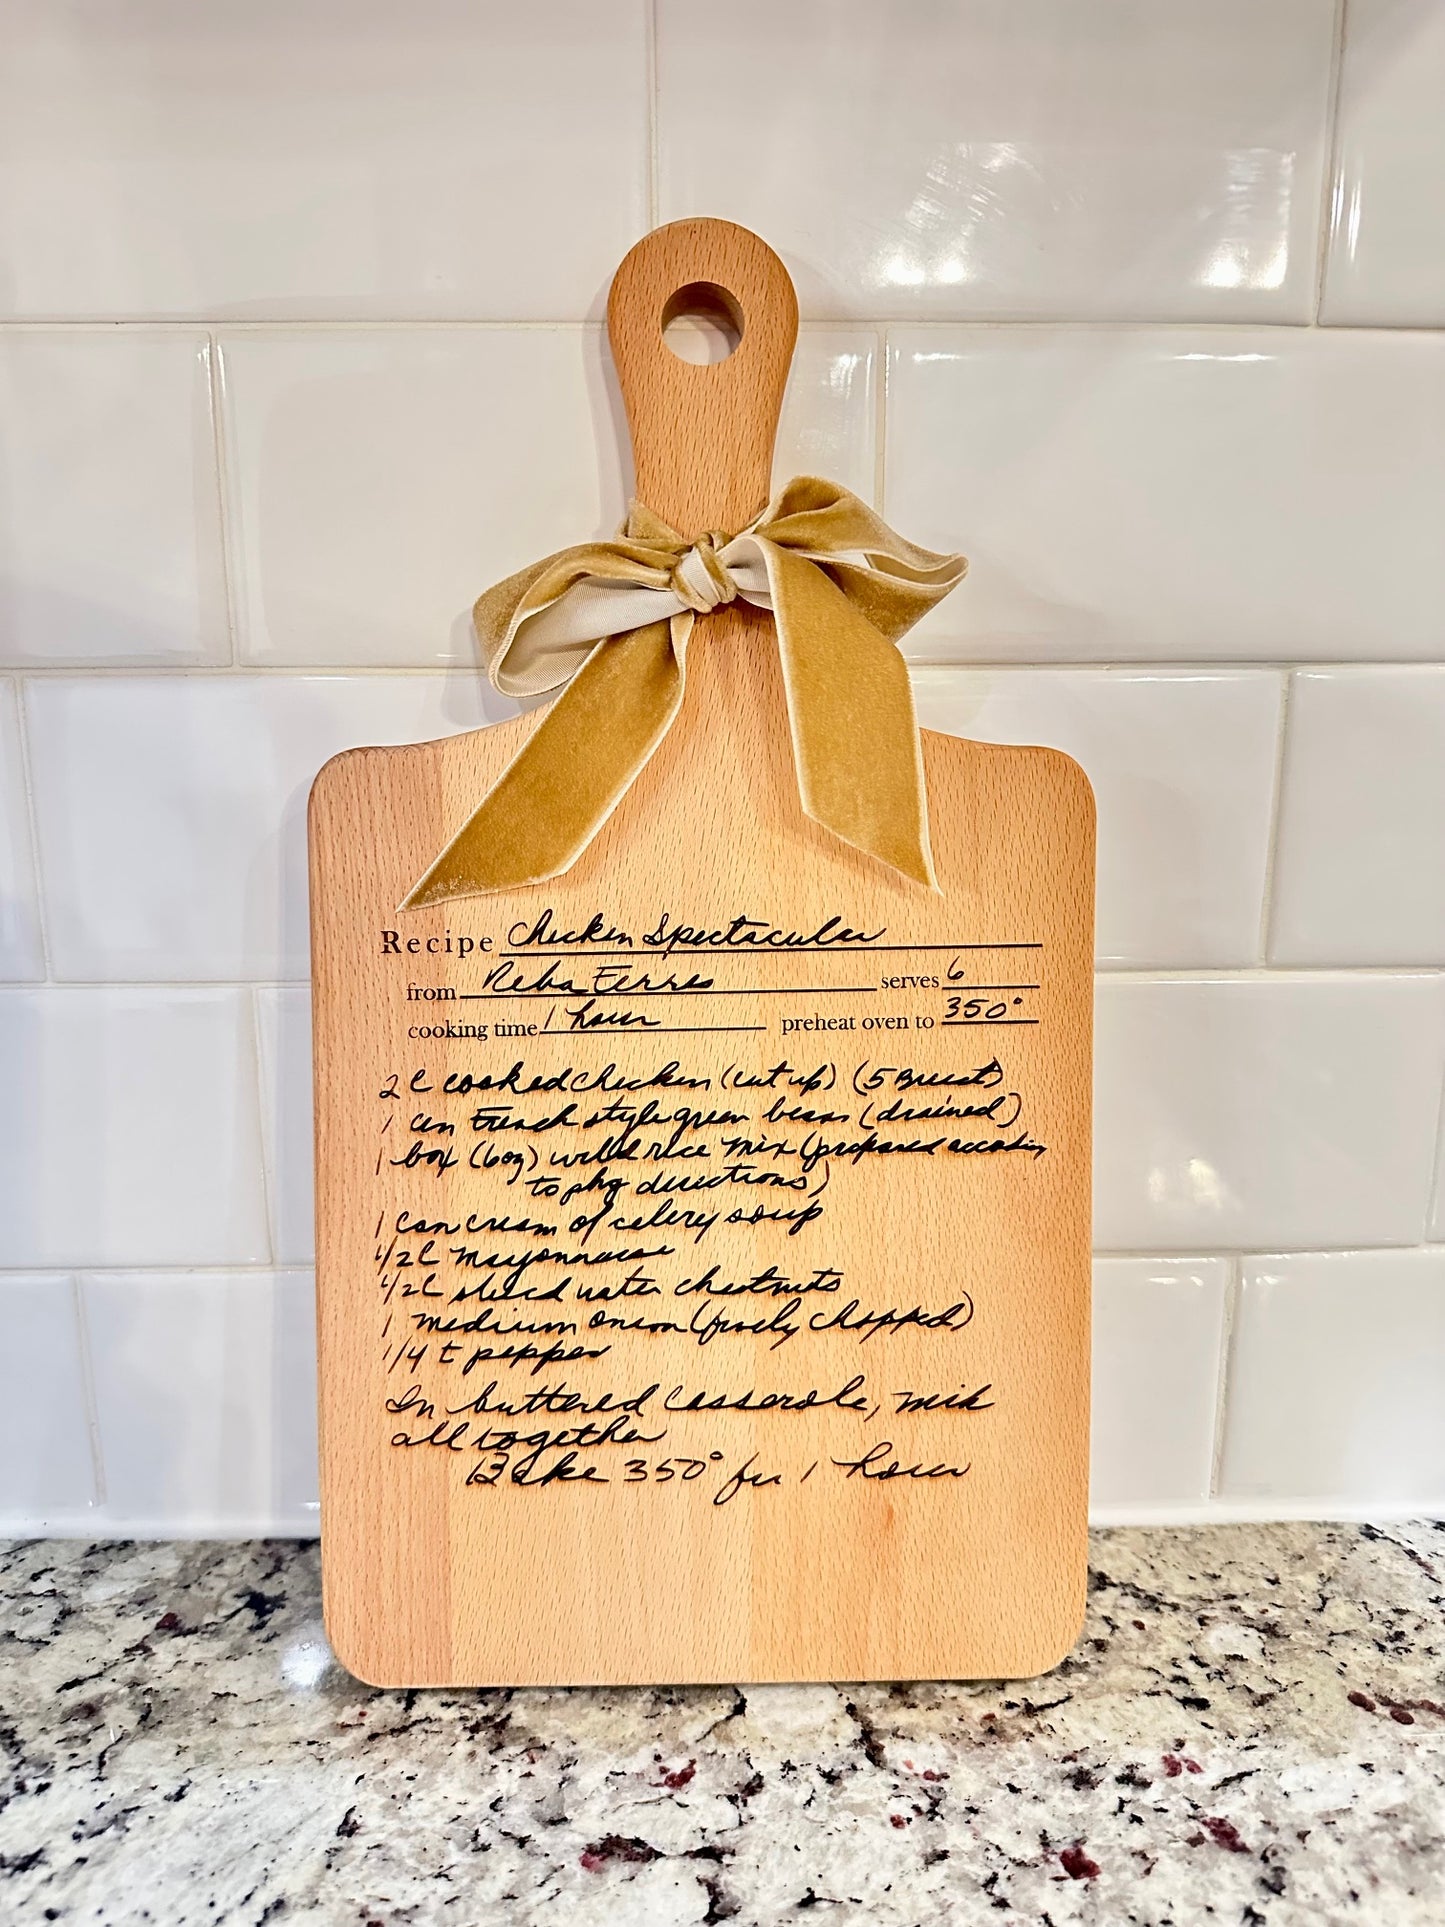 Recipe Chicken Spectacular
from Reba Ferres serves 6
cooking time 1 hour preheat oven to 350°
2 C cooked chicken (cut up) (5 Breast)
1 can French style green beans (drained)
1 box (6oz) wild rice mix (prepared according
to pkg directions)
1 can cream of celery soup
1/2 C mayonnaise
1/2 C sliced water chestnuts
1 medium onion (finely chopped)
1/4 t pepper
In buttered casserole, mix
all together
Bake 350° for 1 hour